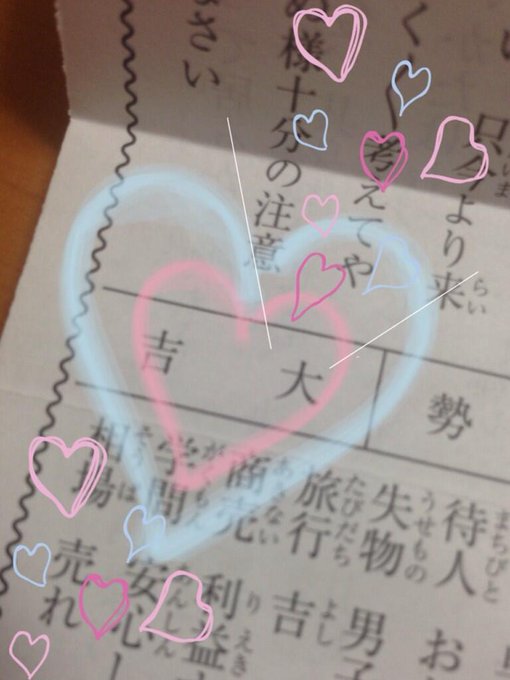 只今より来
く〱考えてや
ぬ様十分の注意
さい
勢
大吉
待人 お
失物 男子
旅行 吉
商売 利益
学問 安心し
相場 売れ